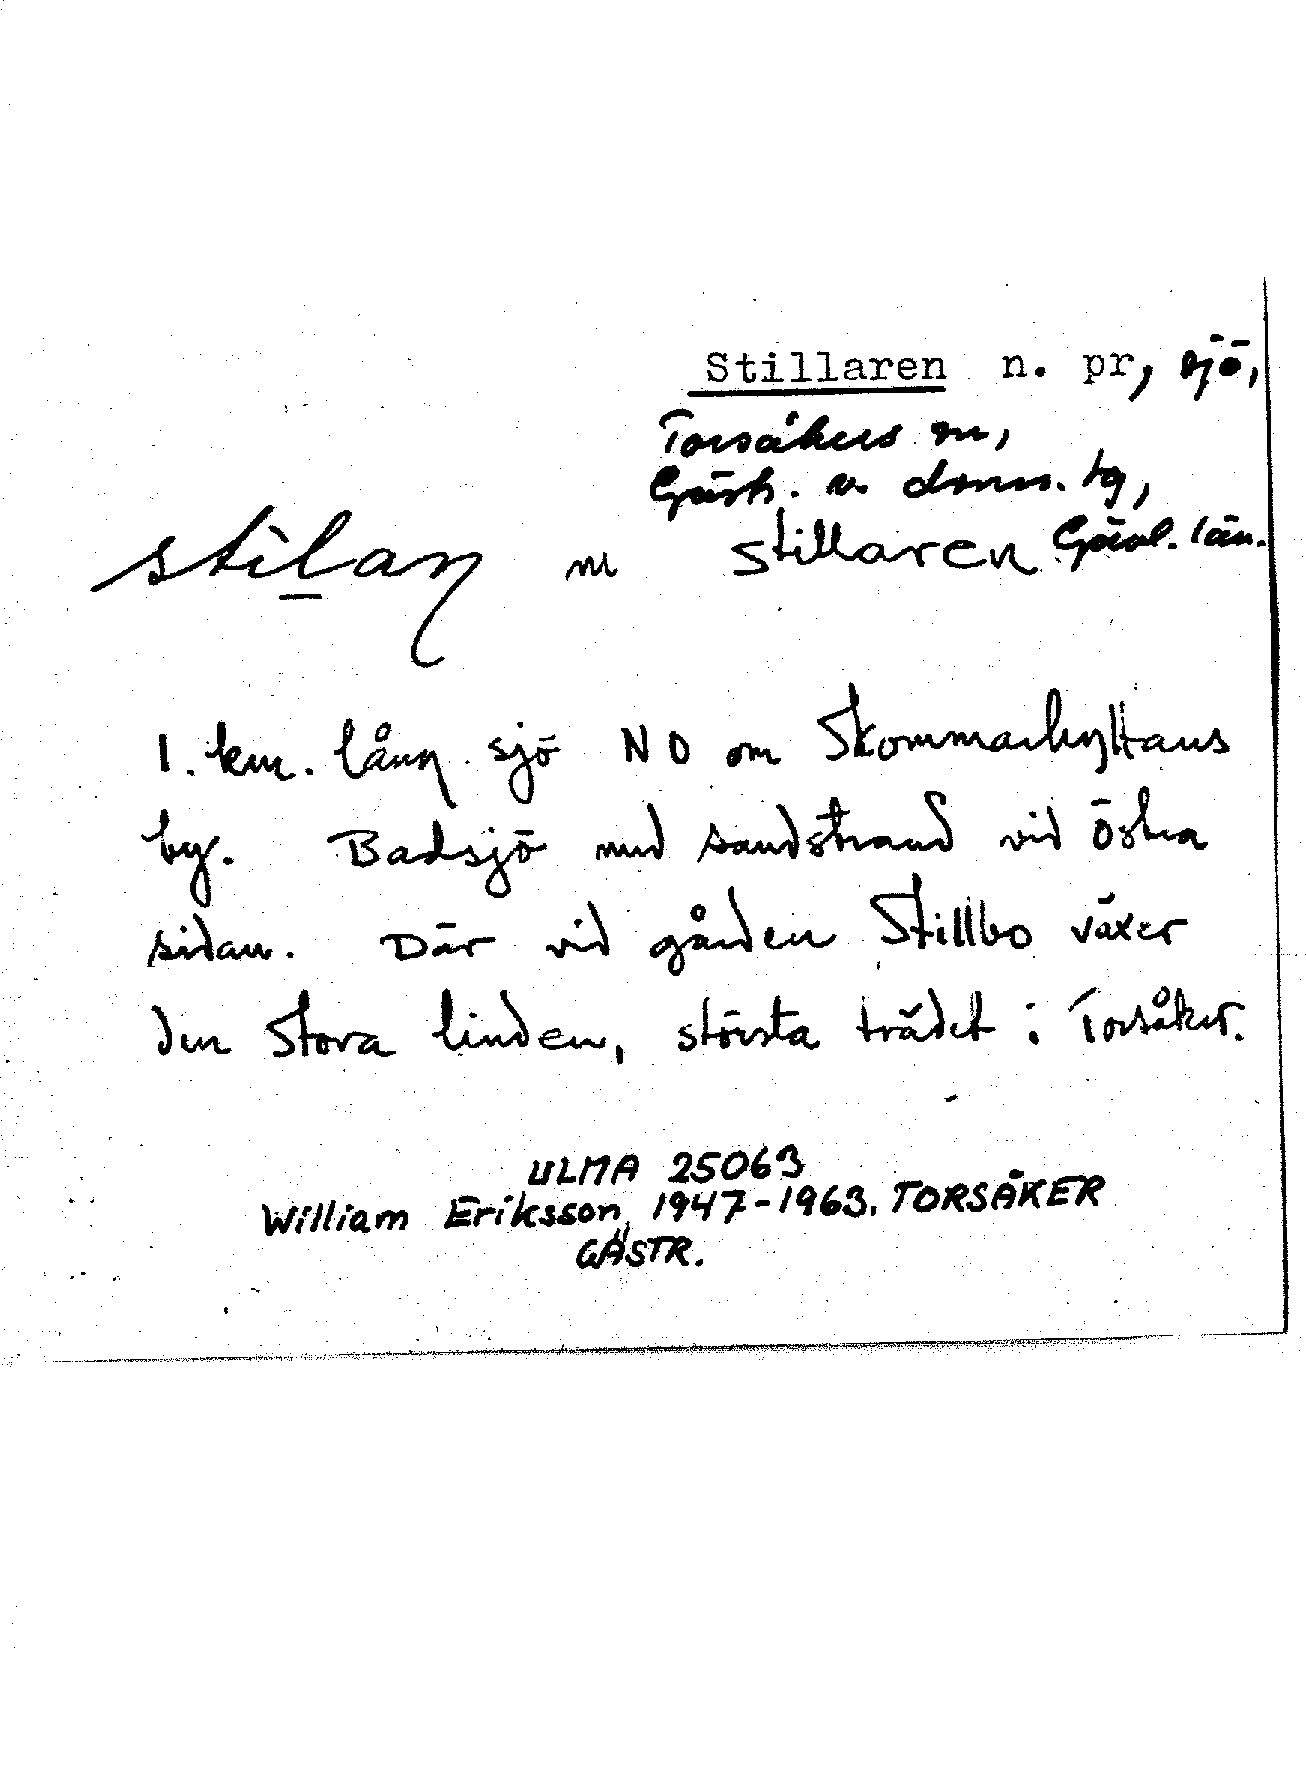 Stillaren n. pr, sjö,
Torsåkers sn,
Gästr. v. doms. tg,
Gävl. län.
stìlan m stillaren
1. km. lång sjö NO om Skommarhyttans
by. Badsjö med sandstrand vid östra
sidan. Där vid gården Stillbo växer
den stora linden, största trädet i Torsåker.
ULMA 25063
William Eriksson, 1947-1963. TORSÅKER
GÄSTR.